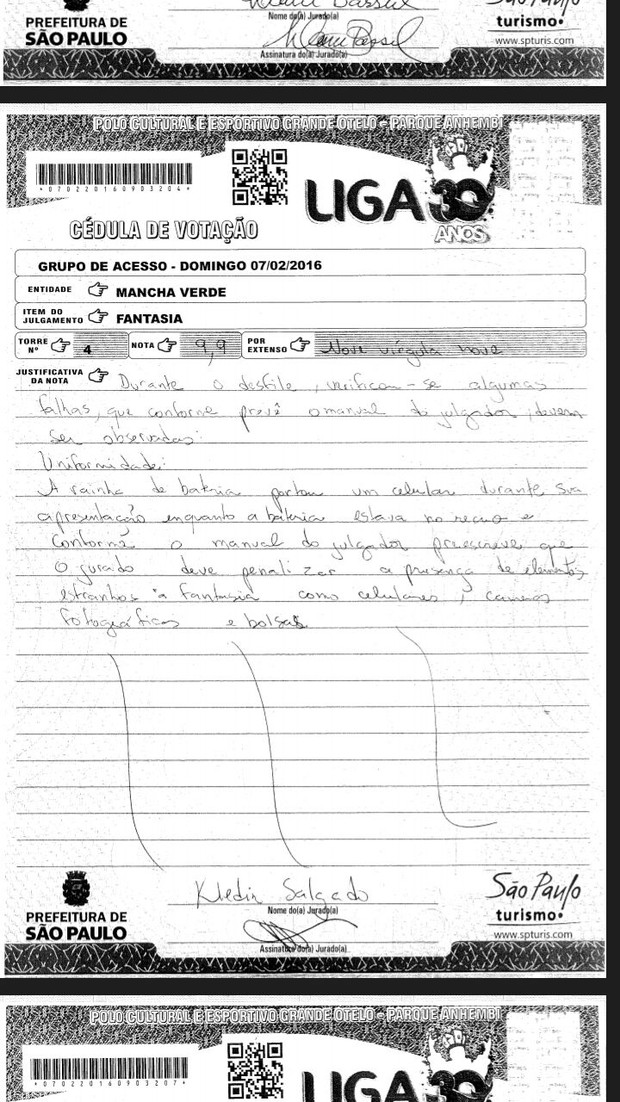 PREFEITURA DE
SÃO PAULO
Nome do(a) Jurado(a)
Assinatura do(a) Jurado(a)
São Paulo
turismo
www.spturis.com
POLO CULTURAL E ESPORTIVO GRANDE OTELO - PARQUE ANHEMBI
*070220160903204*
LIGA 30
ANOS
CÉDULA DE VOTAÇÃO
GRUPO DE ACESSO - DOMINGO 07/02/2016
ENTIDADE MANCHA VERDE
ITEM DO JULGAMENTO FANTASIA
TORRE Nº 4 NOTA 9,9 POR EXTENSO Nove vírgula nove
JUSTIFICATIVA DA NOTA Durante o desfile, verificou-se algumas
falhas, que conforme prevê o manual do julgador, devem
ser observadas:
Uniformidade:
A rainha de bateria portou um celular durante sua
apresentação enquanto a bateria estava no recuo e
conforme o manual do julgador prescreve que
o jurado deve penalizar a presença de elementos
estranhos à fantasia como celulares, cameras
fotográficas e bolsas
Kledir Salgado
Nome do(a) Jurado(a)
Assinatura do(a) Jurado(a)
PREFEITURA DE
SÃO PAULO
São Paulo
turismo
www.spturis.com
POLO CULTURAL E ESPORTIVO GRANDE OTELO - PARQUE ANHEMBI
*070220160903207*
LIGA 30